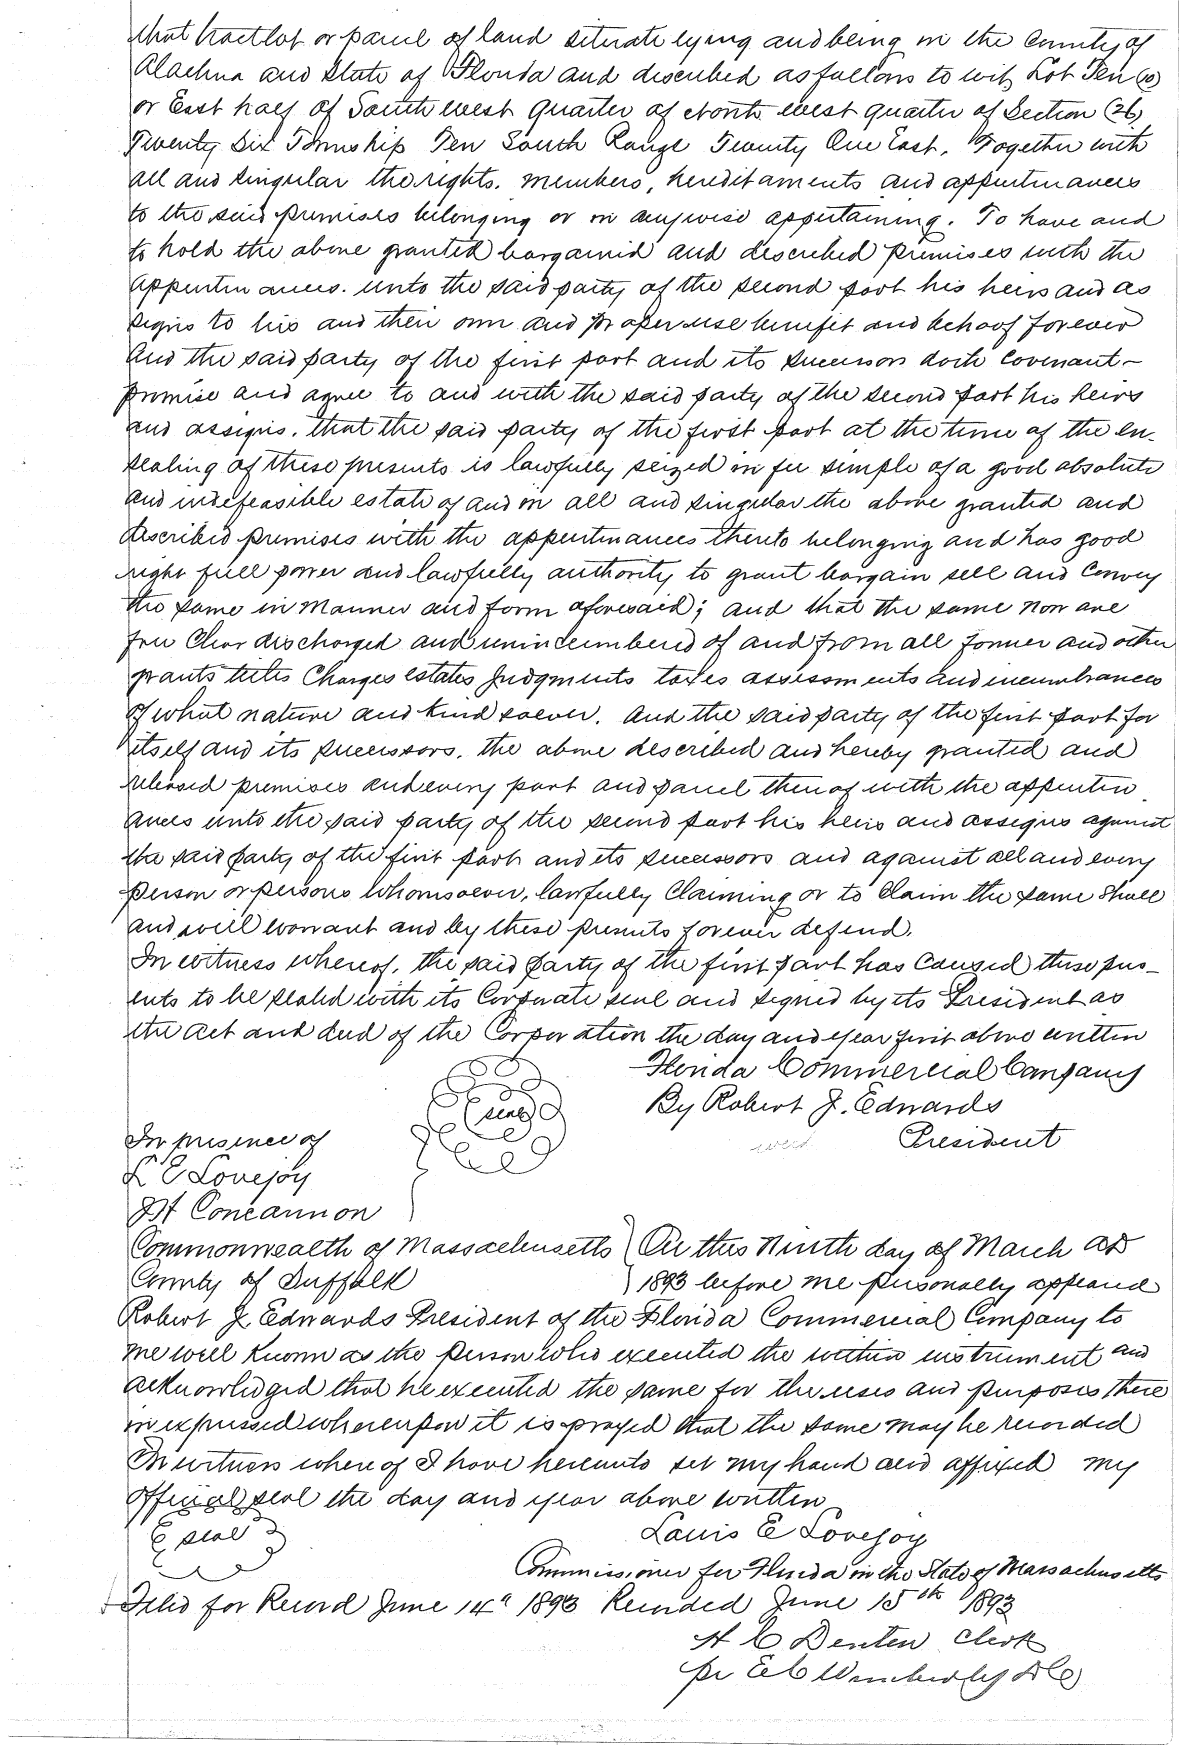 that tract lot or parcel of land situate lying and being in the County of
Alachua and State of Florida and described as follows to wit, Lot Ten (10)
or East half of South west quarter of North west quarter of Section (26)
Twenty Six Township Ten South Range Twenty One East. Together with
all and singular the rights. members, hereditaments and appurtenances
to the said premises belonging or in anywise appertaining. To have and
to hold the above granted bargained and described premises with the
appurtenances. unto the said party of the second part his heirs and as
signs to his and their own and proper use benefit and behoof forever
And the said party of the first part and its successors doth covenant-
promise and agree to and with the said party of the second part his heirs
and assigns. that the said party of the first part at the time of the en-
sealing of these presents is lawfully seized in fee simple of a good absolute
and indefeasible estate of and in all and singular the above granted and
described premises with the appurtenances thereto belonging and has good
right full power and lawfully authority to grant bargain sell and convey
the same in manner and form aforesaid; and that the same now are
free clear discharged and unincumbered of and from all former and other
grants titles charges estates judgments taxes assessments and incumbrances
of what nature and kind soever. And the said party of the first part for
itself and its successors. the above described and hereby granted and
released premises and every part and parcel thereof with the appurten
ances unto the said party of the second part his heirs and assigns against
the said party of the first part and its successors and against all and every
person or persons whomsoever, lawfully claiming or to claim the same shall
and will warrant and by these presents forever defend.
In witness whereof, the said party of the first part has caused these pres-
ents to be sealed with its Corporate seal and signed by its President as
the act and deed of the Corporation the day and year first above written
Florida Commercial Company
(seal) By Robert J. Edwards
In presence of President
L E Lovejoy
Concannon
Commonwealth of Massachusetts } On this Ninth day of March AD
County of Suffolk } 1893 before me personally appeared
Robert J. Edwards President of the Florida Commercial Company to
me well known as the person who executed the within instrument and
acknowledged that he executed the same for the uses and purposes there
in expressed whereupon it is prayed that the same may be recorded
In witness whereof I have hereunto set my hand and affixed my
official seal the day and year above written
seal Louis E Lovejoy
Commissioner for Florida in the State of Massachusetts
Filed for Record June 14" 1893 Recorded June 15th 1893
H C Denton Clerk
pr E C Wimberly DC